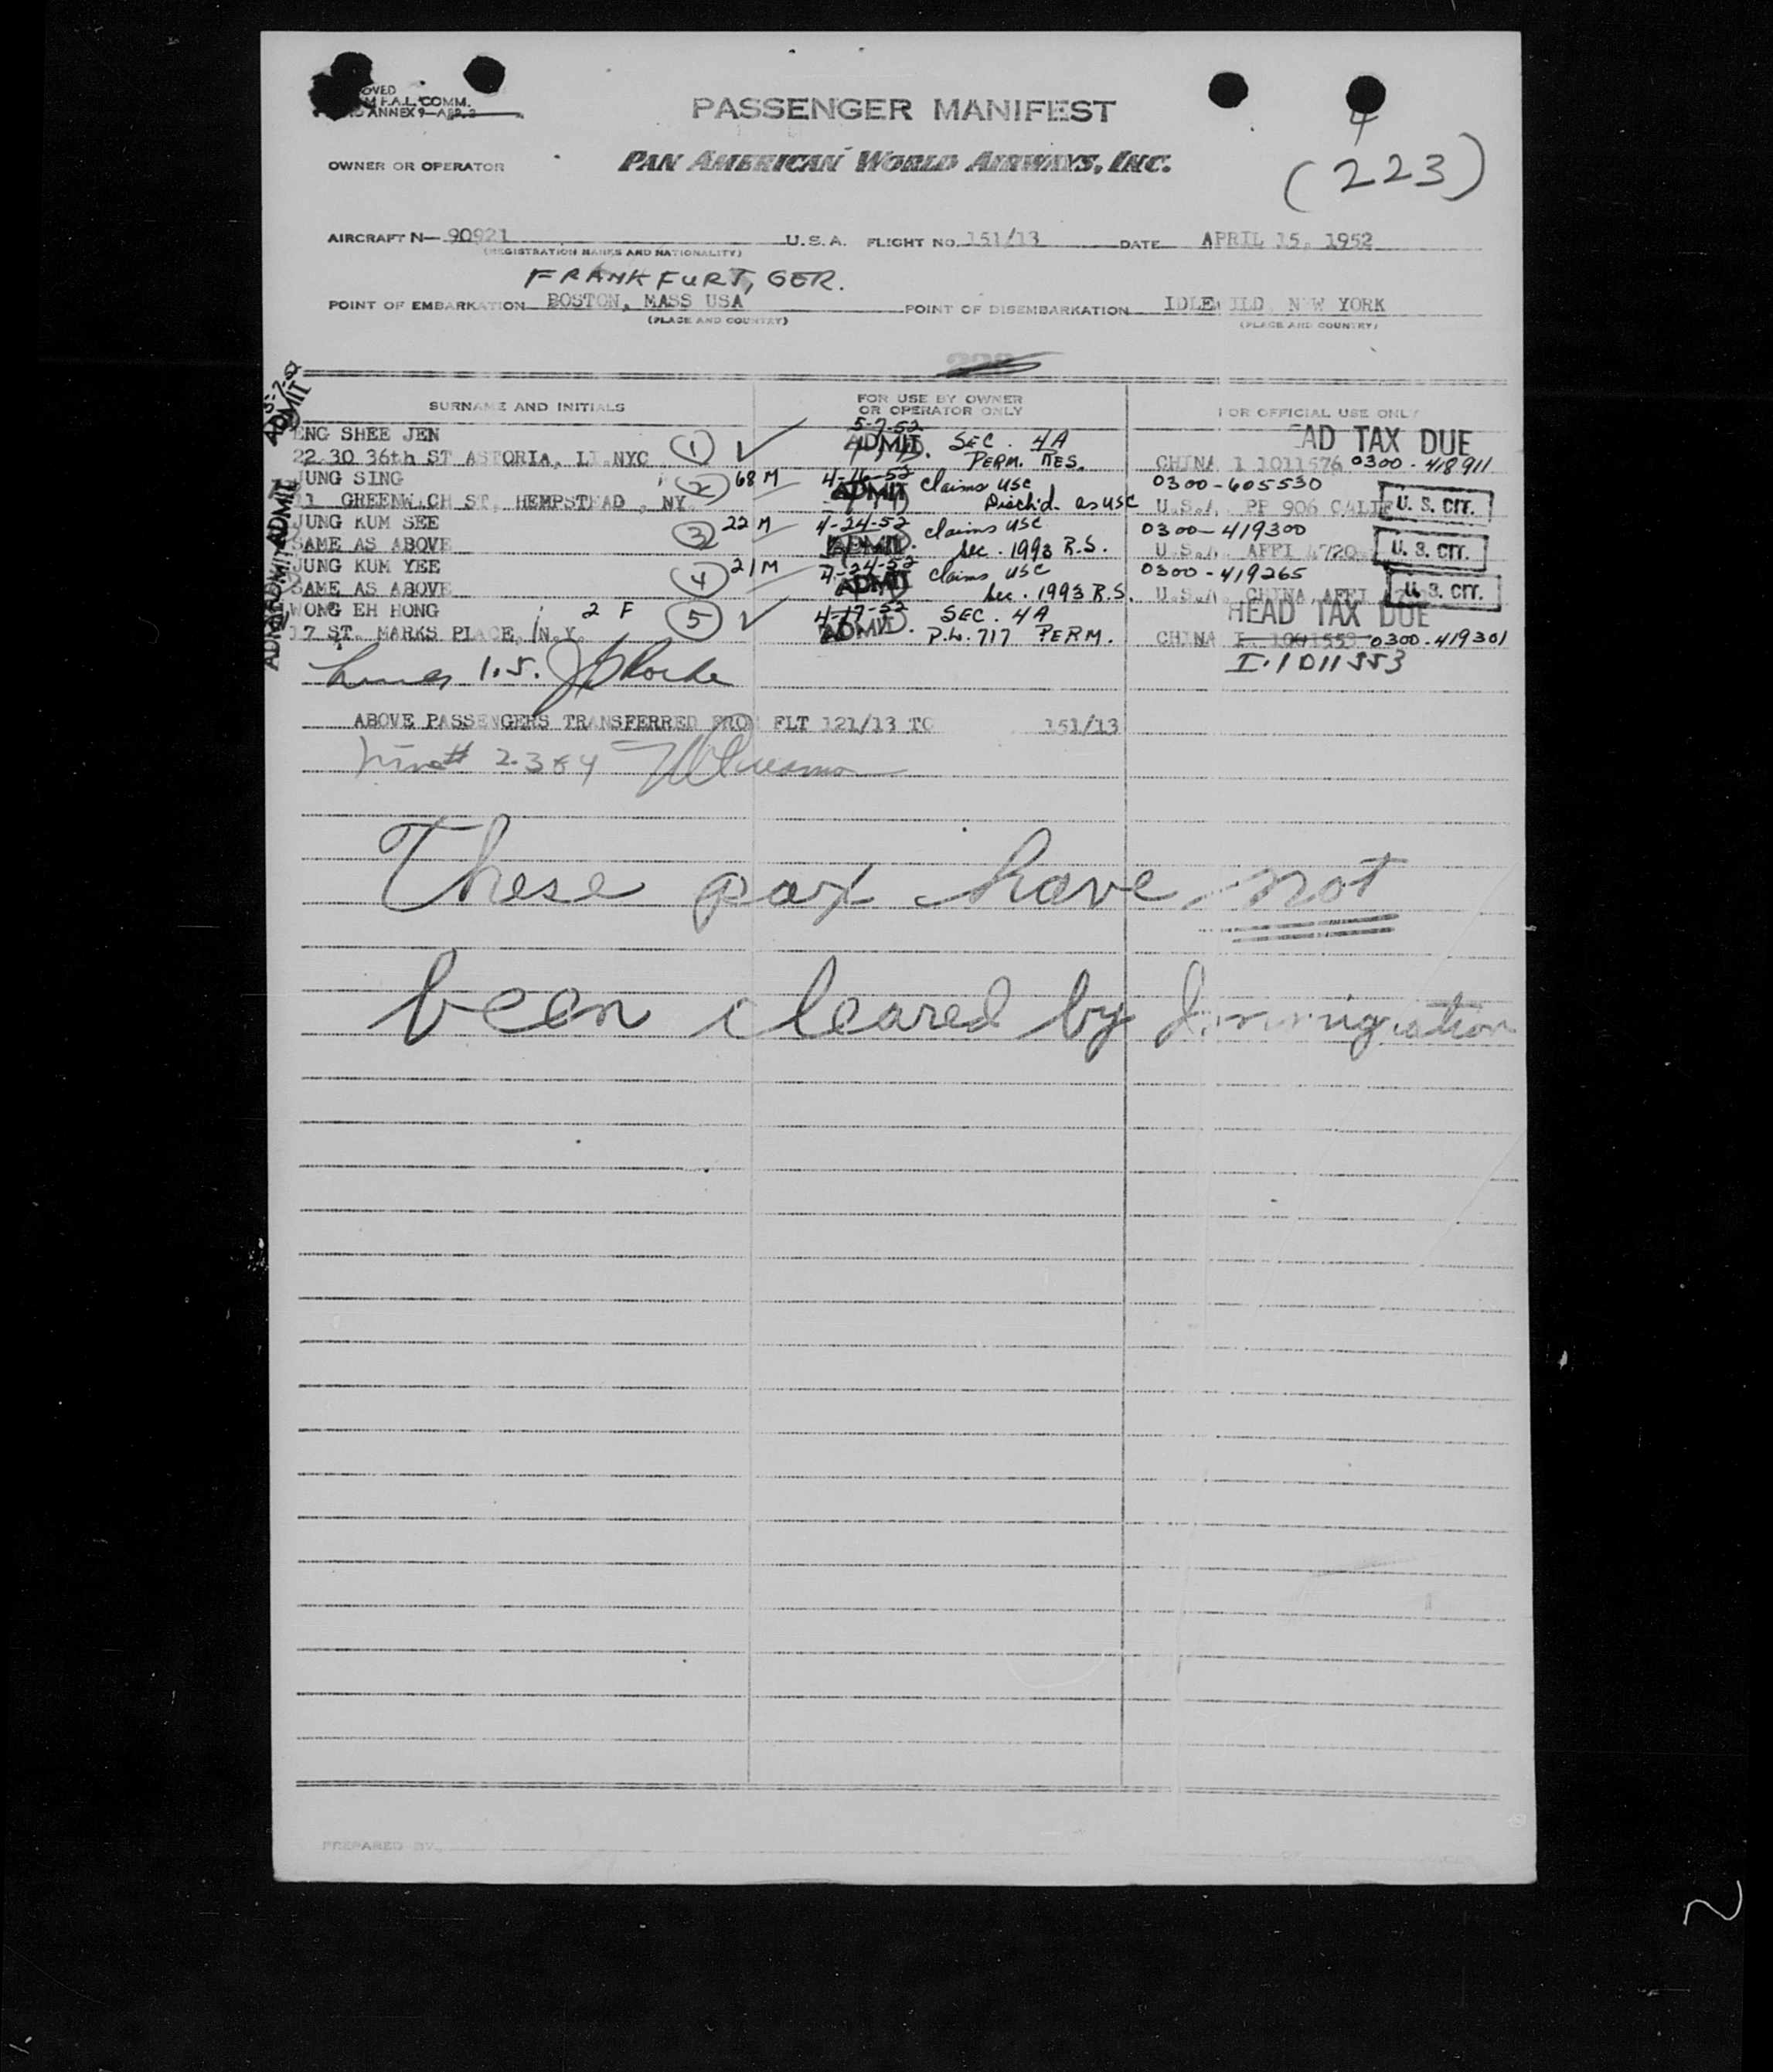 OVED
F.A.L. COMM.
ANNEX 9—APP. 3
PASSENGER MANIFEST
(223)
OWNER OR OPERATOR PAN AMERICAN WORLD AIRWAYS, INC.
AIRCRAFT N— 90921 U.S.A. FLIGHT NO. 151/13 DATE APRIL 15, 1952
(REGISTRATION MARKS AND NATIONALITY)
FRANKFURT, GER.
POINT OF EMBARKATION BOSTON, MASS USA POINT OF DISEMBARKATION IDLEWILD NEW YORK
(PLACE AND COUNTRY) (PLACE AND COUNTRY)
SURNAME AND INITIALS FOR USE BY OWNER OR OPERATOR ONLY FOR OFFICIAL USE ONLY
ENG SHEE JEN 1 5-7-52 ADMIT SEC. 4A EAD TAX DUE
22 30 36th ST ASTORIA, LI NYC PERM. RES. CHINA I 1011576 0300-418911
JUNG SING 2 68 M 4-16-52 ADMIT claims USC 0300-605530
11 GREENWICH ST, HEMPSTEAD, NY Disch'd. as USC U.S.A. PP 906 CALIF U. S. CIT.
JUNG KUM SEE 3 22 M 4-24-52 claims USC 0300-419300
SAME AS ABOVE ADMIT Sec. 1993 R.S. U.S.A. AFFI U. S. CIT.
JUNG KUM YEE 4 21 M 4-24-52 claims USC 0300-419265
SAME AS ABOVE ADMIT Sec. 1993 R.S. U.S.A. CHINA AFFI U. S. CIT.
WONG EH HONG 2 F 5 4-17-52 SEC. 4A HEAD TAX DUE
17 ST. MARKS PLACE, N.Y. ADMIT P.L. 717 PERM. CHINA I 1041553 0300-419301
I.1011553
ABOVE PASSENGERS TRANSFERRED FROM FLT 121/13 TO 151/13
These pax have not
been cleared by Immigration
PREPARED BY